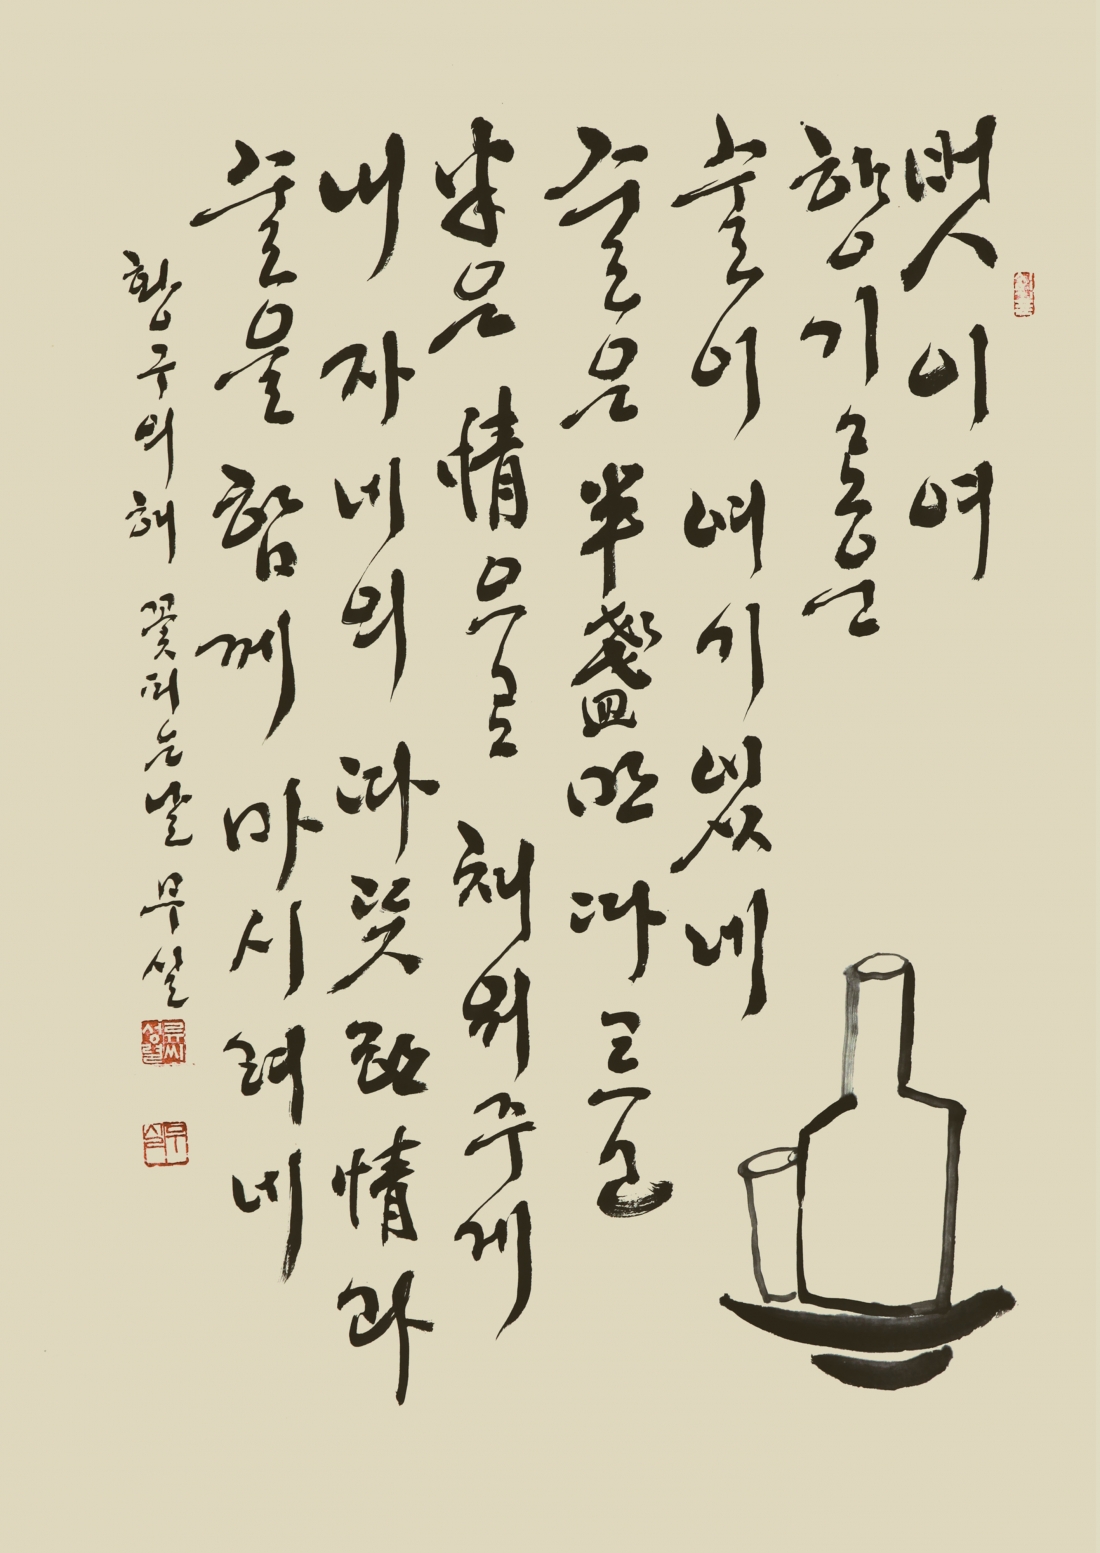 벗이여
향기로운
술이 여기 있네
술은 半盞만 따르고
半은 情으로 채워주게
내 자네의 따뜻한 情과
술을 함께 마시려네
황구의 해 꽃피는 날 무실